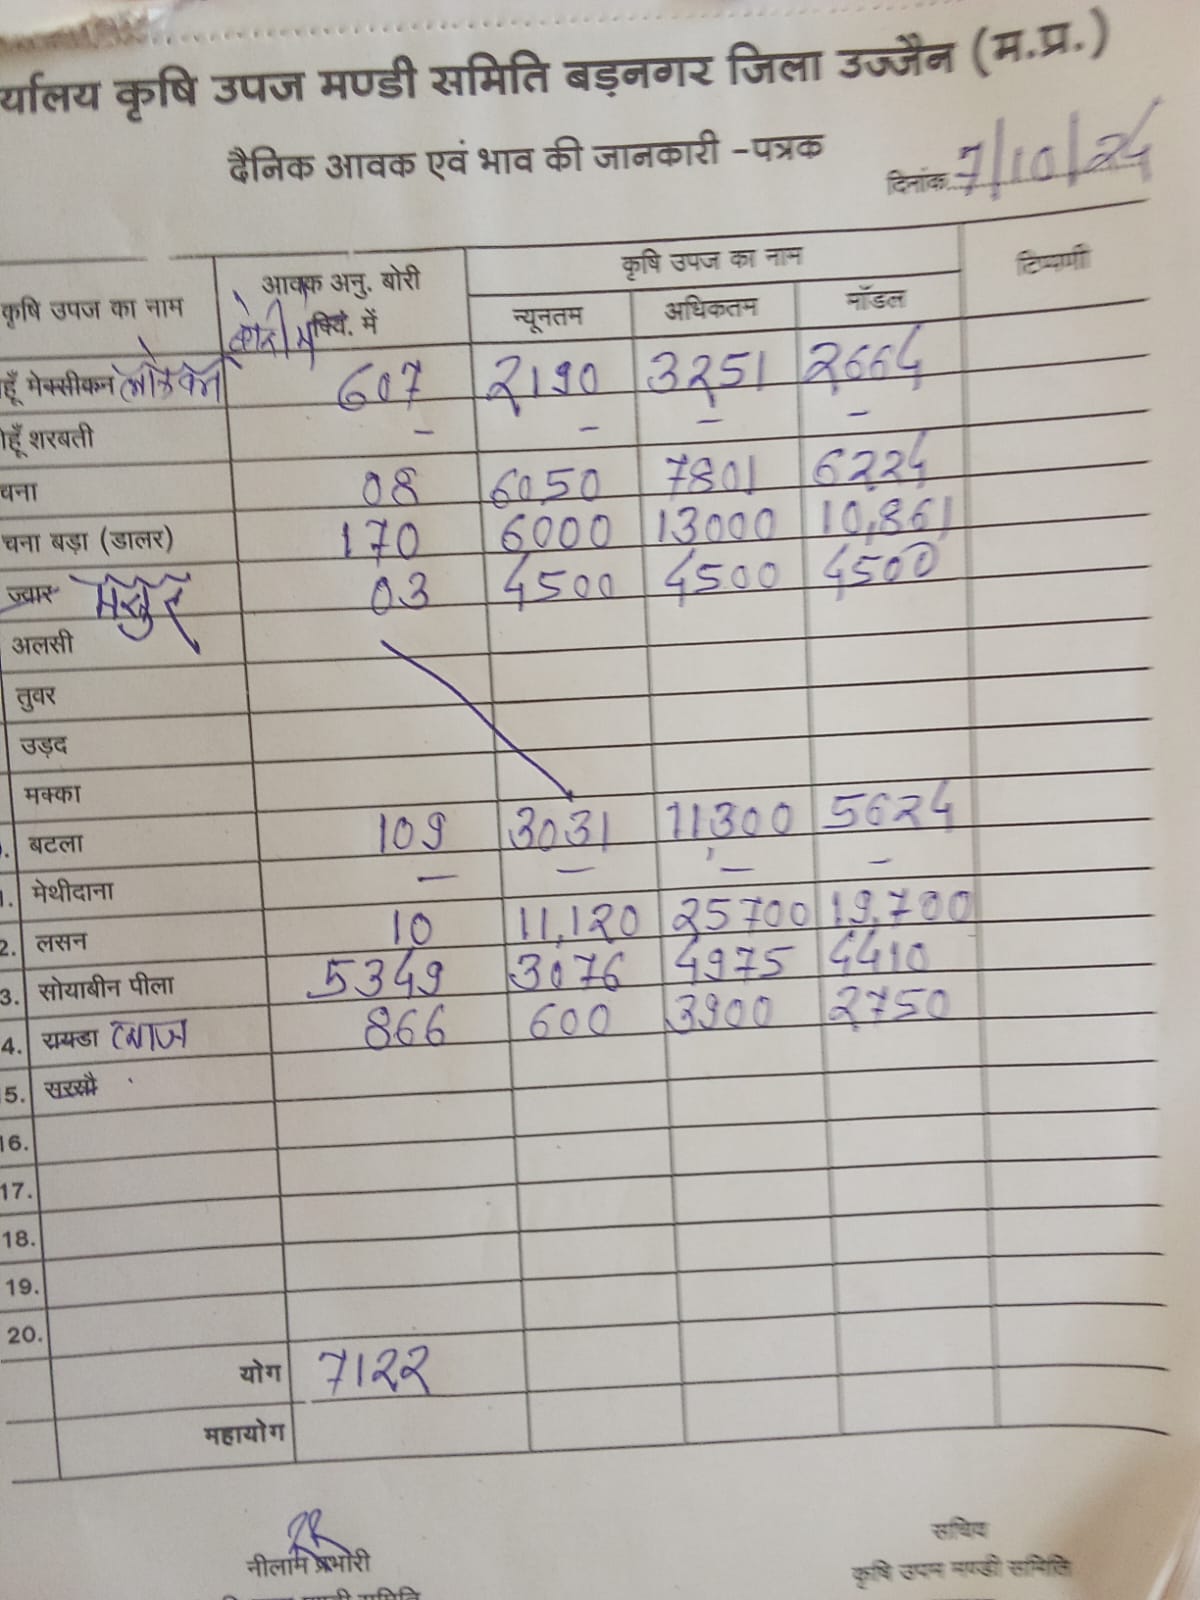 र्यालय कृषि उपज मण्डी समिति बड़नगर जिला उज्जैन (म.प्र.)
दैनिक आवक एवं भाव की जानकारी -पत्रक
दिनांक 7/10/24
कृषि उपज का नाम आवक अनु. बोरी क्विं. में कृषि उपज का नाम टिप्पणी
न्यूनतम अधिकतम मॉडल
हूँ मेक्सीकन लोकवन 607 2190 3251 2664
हूँ शरबती - - - -
चना 08 6050 7801 6224
चना बड़ा (डालर) 170 6000 13000 10,861
ज्वार मसुर 03 4500 4500 4500
अलसी
तुवर
उड़द
मक्का
. बटला 109 3031 11300 5624
1. मेथीदाना - - - -
2. लसन 10 11,120 25700 19,700
3. सोयाबीन पीला 5349 3076 4975 4410
4. रायडा प्याज 866 600 3900 2750
5. सरसौ
16.
17.
18.
19.
20.
योग 7122
महायोग
नीलाम प्रभारी सचिव
कृषि उपज मण्डी समिति
मण्डी समिति